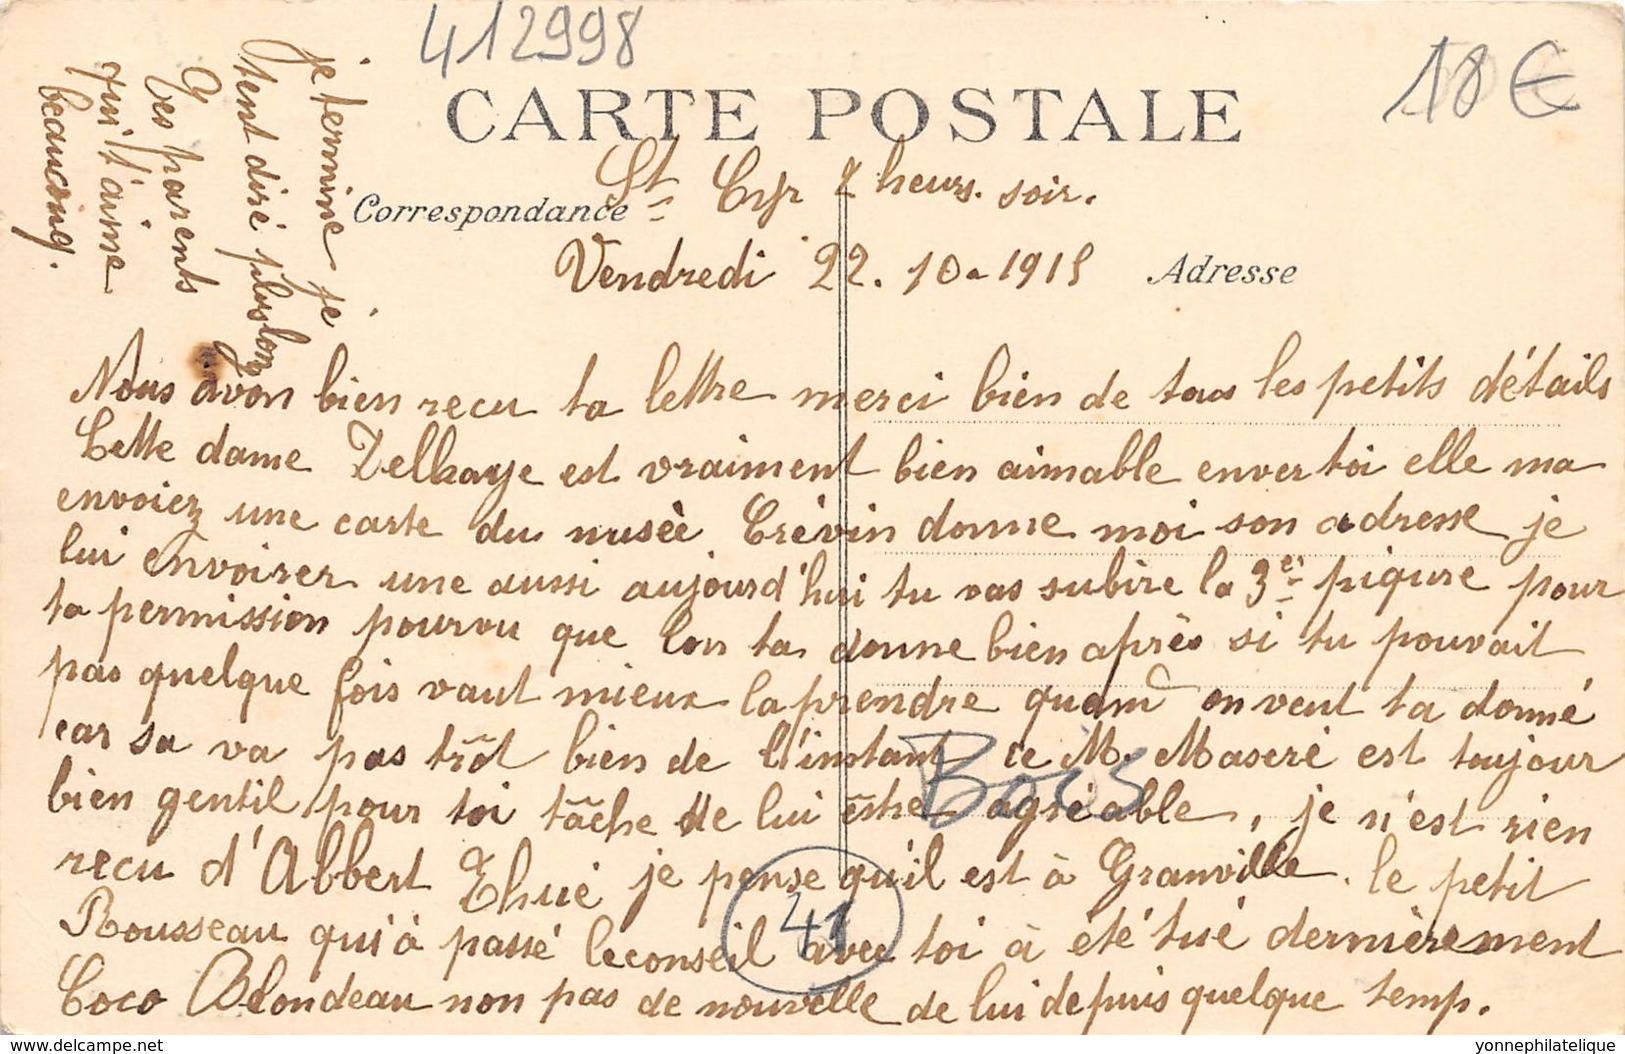 412998
18 €
CARTE POSTALE
Correspondance
Adresse
St Cyr 2 heurs. soir.
Vendredi 22. 10 - 1915
Nous avon bien recu ta lettre merci bien de tous les petits détails
Cette dame Delhaye est vraiment bien aimable enver toi elle ma
envoiez une carte du musèe Crévin donne moi son adresse je
lui envoirer une aussi aujourd'hui tu vas subire la 3er piqure pour
ta permission pourvu que lon ta donne bien après si tu pouvait
pas quelque fois vaut mieux la prendre quand on veut ta donné
car sa va pas trôt bien de l'instant ce M. Maseré est toujour
bien gentil pour toi tâche de lui êthe agréable, je n'est rien
recu d'Albert Thué je pense qu'il est à Granville. le petit
Rousseau qui à passé leconseil avec toi à été tué dernièrement
Coco Blondeau non pas de nouvelle de lui depuis quelque temp.
je termine je
tent diré plus lon
Ges parents
qui t'aime
beaucoup.
Bois
41
www.delcampe.net
yonnephilatelique